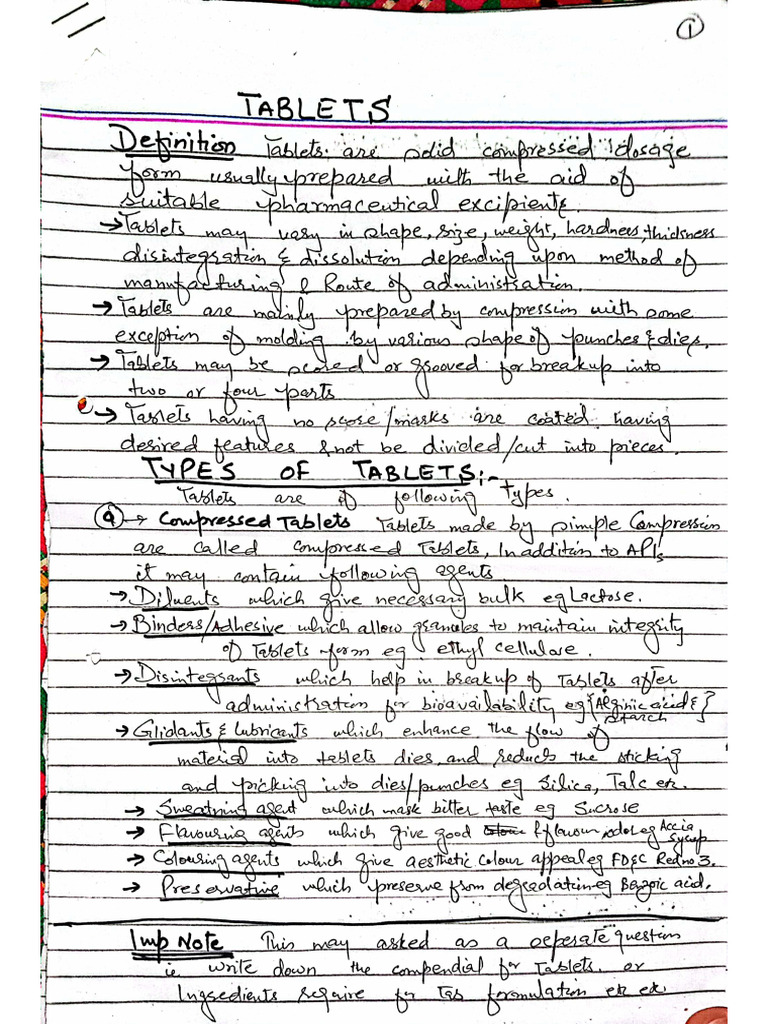 ①
TABLETS
Definition Tablets are solid compressed dosage
form usually prepared with the aid of
suitable pharmaceutical excipients.
→ Tablets may vary in shape, size, weight, hardness, thickness
disintegration & dissolution depending upon method of
manufacturing & Route of administration.
→ Tablets are mainly prepared by compression with some
exception of molding by various shape of punches & dies.
→ Tablets may be scored or grooved for breakup into
two or four parts
→ Tablets having no score/marks are coated having
desired features & not be divided/cut into pieces.
TYPES OF TABLETS:-
Tablets are of following types.
ⓐ → Compressed Tablets Tablets made by simple Compression
are called compressed Tablets, In addition to APIs
it may contain following agents
→ Diluents which give necessary bulk eg Lactose.
→ Binders/Adhesive which allow granules to maintain integrity
of Tablets form eg ethyl cellulose.
→ Disintegrants which help in breakup of Tablets after
administration for bioavailability eg {Alginic acid & starch}
→ Glidants & Lubricants which enhance the flow of
material into tablets dies, and reduces the sticking
and picking into dies/punches eg Silica, Talc etc.
→ Sweatning agent which mask bitter taste eg Sucrose
→ Flavouring agents which give good & flavour, odor eg Accia Syrup
→ Colouring agents which give aesthetic colour appeal eg FD&C Red no 3.
→ Preservative which preserve from degradation eg Benzoic acid.
Imp Note This may asked as a seperate question
i.e. write down the compendial for Tablets. or
Ingredients require for Tas formulation etc etc.